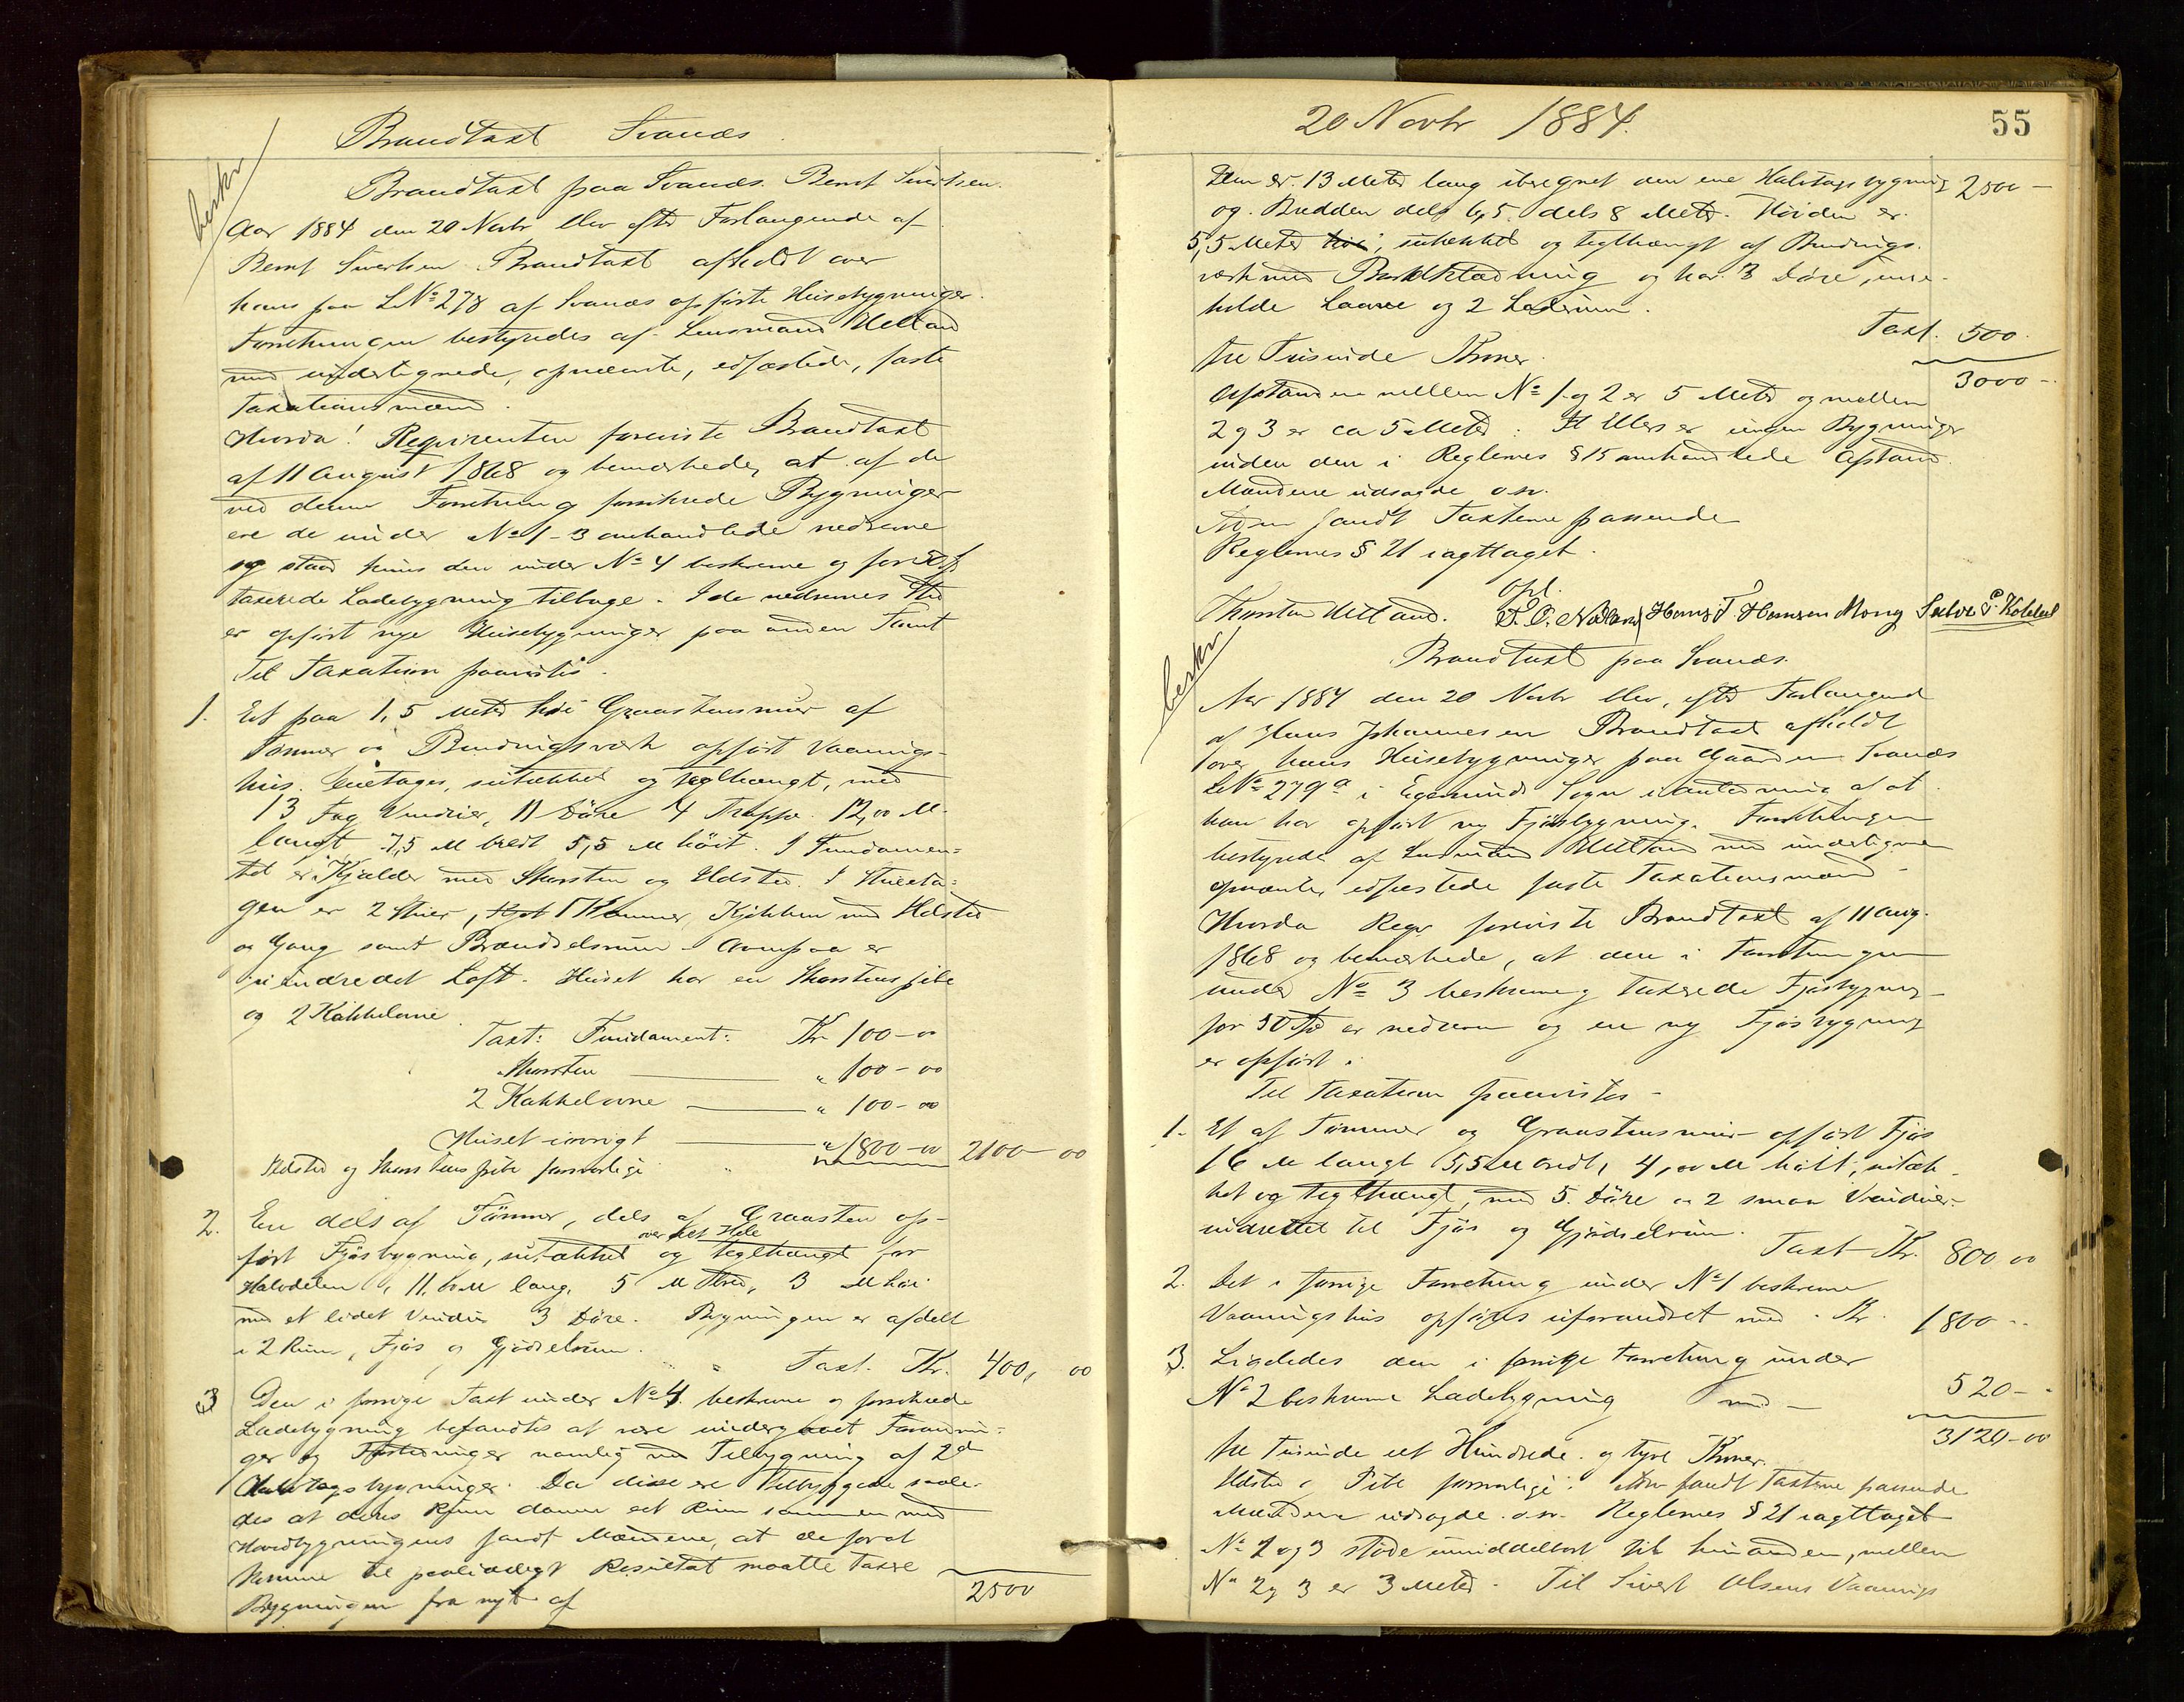 Brandtaxt Svanæs
beskr
Brandtaxt paa Svanæs. Bernt Sivertsen.
Aar 1884 den 20 Novbr blev efter Forlangende af
Bernt Sivertsen Brandtaxt afholdt over
hans paa LNo 278 af Svanæs opførte Husebygninger.
Forretningen bestyredes af Lensmand Uelland
med undertegnede, opnævnte, edfæstede, faste
Taxationsmænd.
Hvorda! Reqvirenten foreviste Brandtaxt
af 11 August 1868 og bemærkede, at af de
ved denne Forretning forsikrede Bygninger
ere de under No 1-3 omhandlede nedrevne
og staar kuns den under No 4 beskrevne og for
taxerede Ladebygning tilbage. I de nedrevnes Sted
er opført nye Husebygninger paa anden Tomt
Til Taxation paavistes.
1. Et paa 1,5 Meter høi Graastensmur af
Tømmer og Bindingsværk opført Vaanings-
hus. Enetages, suttækket og teglhængt, med
13 Fag Vinduer, 11 Døre 4 Trapper. 12,00 M.
langt 7,5 M bredt 5,5 M høit. I Fundamen-
tet er Kjælder med Skorsten og Ildsted. I Stueeta-
gen er 2 Stuer, 1 Kammer, Kjøkken med Ildsted
og Gang samt Brændselsrum. Ovenpaa er
uindredet Loft. Huset har en Skorstenspibe
og 2 Kakkelovne
Taxt: Fundament: Kr 100-00
Skorsten " 100-00
2 Kakkelovne " 100-00
Huset iøvrigt " 1800-00 2100-00
Ildsted og Skorstenspibe forsvarlige
2. En dels af Tømmer, dels af Graasten op-
over det Hele
ført Fjøsbygning, suttækket og teglhængt for
Halvdelen, 11, M lang, 5 M bred, 3 M høi
med et lidet Vindu 3 Døre. Bygningen er afdelt
i 2 Rum, Fjøs og Gjødselrum.
Taxt. Kr. 400, 00
3 Den i forrige Taxt under No 4 beskrevne og forsikrede
Ladebygning befandtes at være undergaaet Forandrin-
ger og Forbedringer namlig med Tilbygning af 2de
Halvtagsbygninger. Da disse ere tilbyggede saale-
des at deres Rum danne eet Rum sammen med
Hovedbygningens fandt Mændene, at de for at
komme til paalideligt Resultat maatte taxere
Bygningen fra nyt af
2500
20 Novbr 1884.
55
Den er 13 Meter lang iberegnet den ene Halvtagsbygning 2500 -
og Bredden dels 6,5 dels 8 Meter. Høiden er
5,5 Meter, suttækket og teglhængt af Bindings-
værk med Bordklædning og har 3 Døre, inde-
holde Laave og 2 Laderum.
Taxt. 500.
tre Tusinde Kroner.
3000 -
Afstanden mellem No 1 og 2 er 5 Meter og mellem
2 og 3 er ca 5 Meter. Ellers er ingen Bygninger
inden den i Reglernes § 15 omhandlede Afstand.
Mændene udsagde o.s.v.
fandt Taxterne passende
Reglernes § 21 iagttaget.
Opl.
Thorsten Uelland. Hans T. Hansen Mong
beskr
Brandtaxt paa Svanæs.
Aar 1884 den 20 Novbr blev, efter Forlangend
af Hans Johannesen Brandtaxt afholdt
over hans Husebygninger paa Gaarden Svanæs
LNo 279a i Egersunds Sogn i Anledning af at
han har opført ny Fjøsbygning. Forretningen
bestyredes af Lensmand Uelland med undertegnede
opnævnte, edfæstede faste Taxationsmænd -
Hvorda Reqv foreviste Brandtaxt af 11 Aug.
1868 og bemærkede, at den i Forretningen
under No 3 beskrevne og taxerede Fjøsbygning
for 50 Spd er nedreven og en ny Fjøsbygning
er opført.
Til Taxation paavistes -
1. Et af Tømmer og Graastensmur opført Fjøs
16 M langt 5,5 M bredt, 4,00 M høit, suttæk-
ket og teglhængt, med 5 Døre og 2 smaa Vinduer-
indrettet til Fjøs og Gjødselrum.
Taxt Kr. 800 00
2. Det i forrige Forretning under No 1 beskrevne
Vaaningshus opføres uforandret med - Kr. 1800 --
3. Ligeledes den i forrige Forretning under
No 2 beskrevne Ladebygning med - 520 - -
3120-00
tre Tusinde et Hundrede og tyve Kroner.
Ildsted og Pibe forsvarlige. fandt Taxterne passende
Mændene udsagde o.s.v. Reglernes § 21 iagttaget
No 2 og 3 støde umiddelbart til hinanden, mellem
No 2 og 3 er 3 Meter - Til Sivert Olsens Vaanings